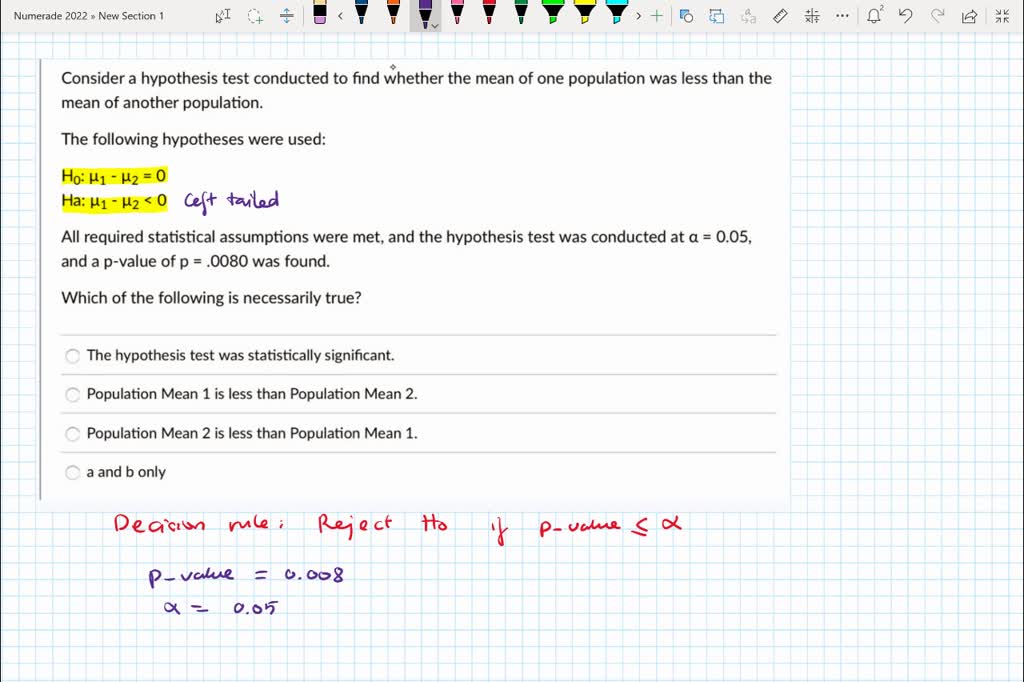 Numerade 2022 » New Section 1
2
Consider a hypothesis test conducted to find whether the mean of one population was less than the
mean of another population.
The following hypotheses were used:
H₀: μ₁ - μ₂ = 0
Ha: μ₁ - μ₂ < 0 Left tailed
All required statistical assumptions were met, and the hypothesis test was conducted at α = 0.05,
and a p-value of p = .0080 was found.
Which of the following is necessarily true?
The hypothesis test was statistically significant.
Population Mean 1 is less than Population Mean 2.
Population Mean 2 is less than Population Mean 1.
a and b only
Decision rule: Reject Ho if p-value ≤ α
p-value = 0.008
α = 0.05